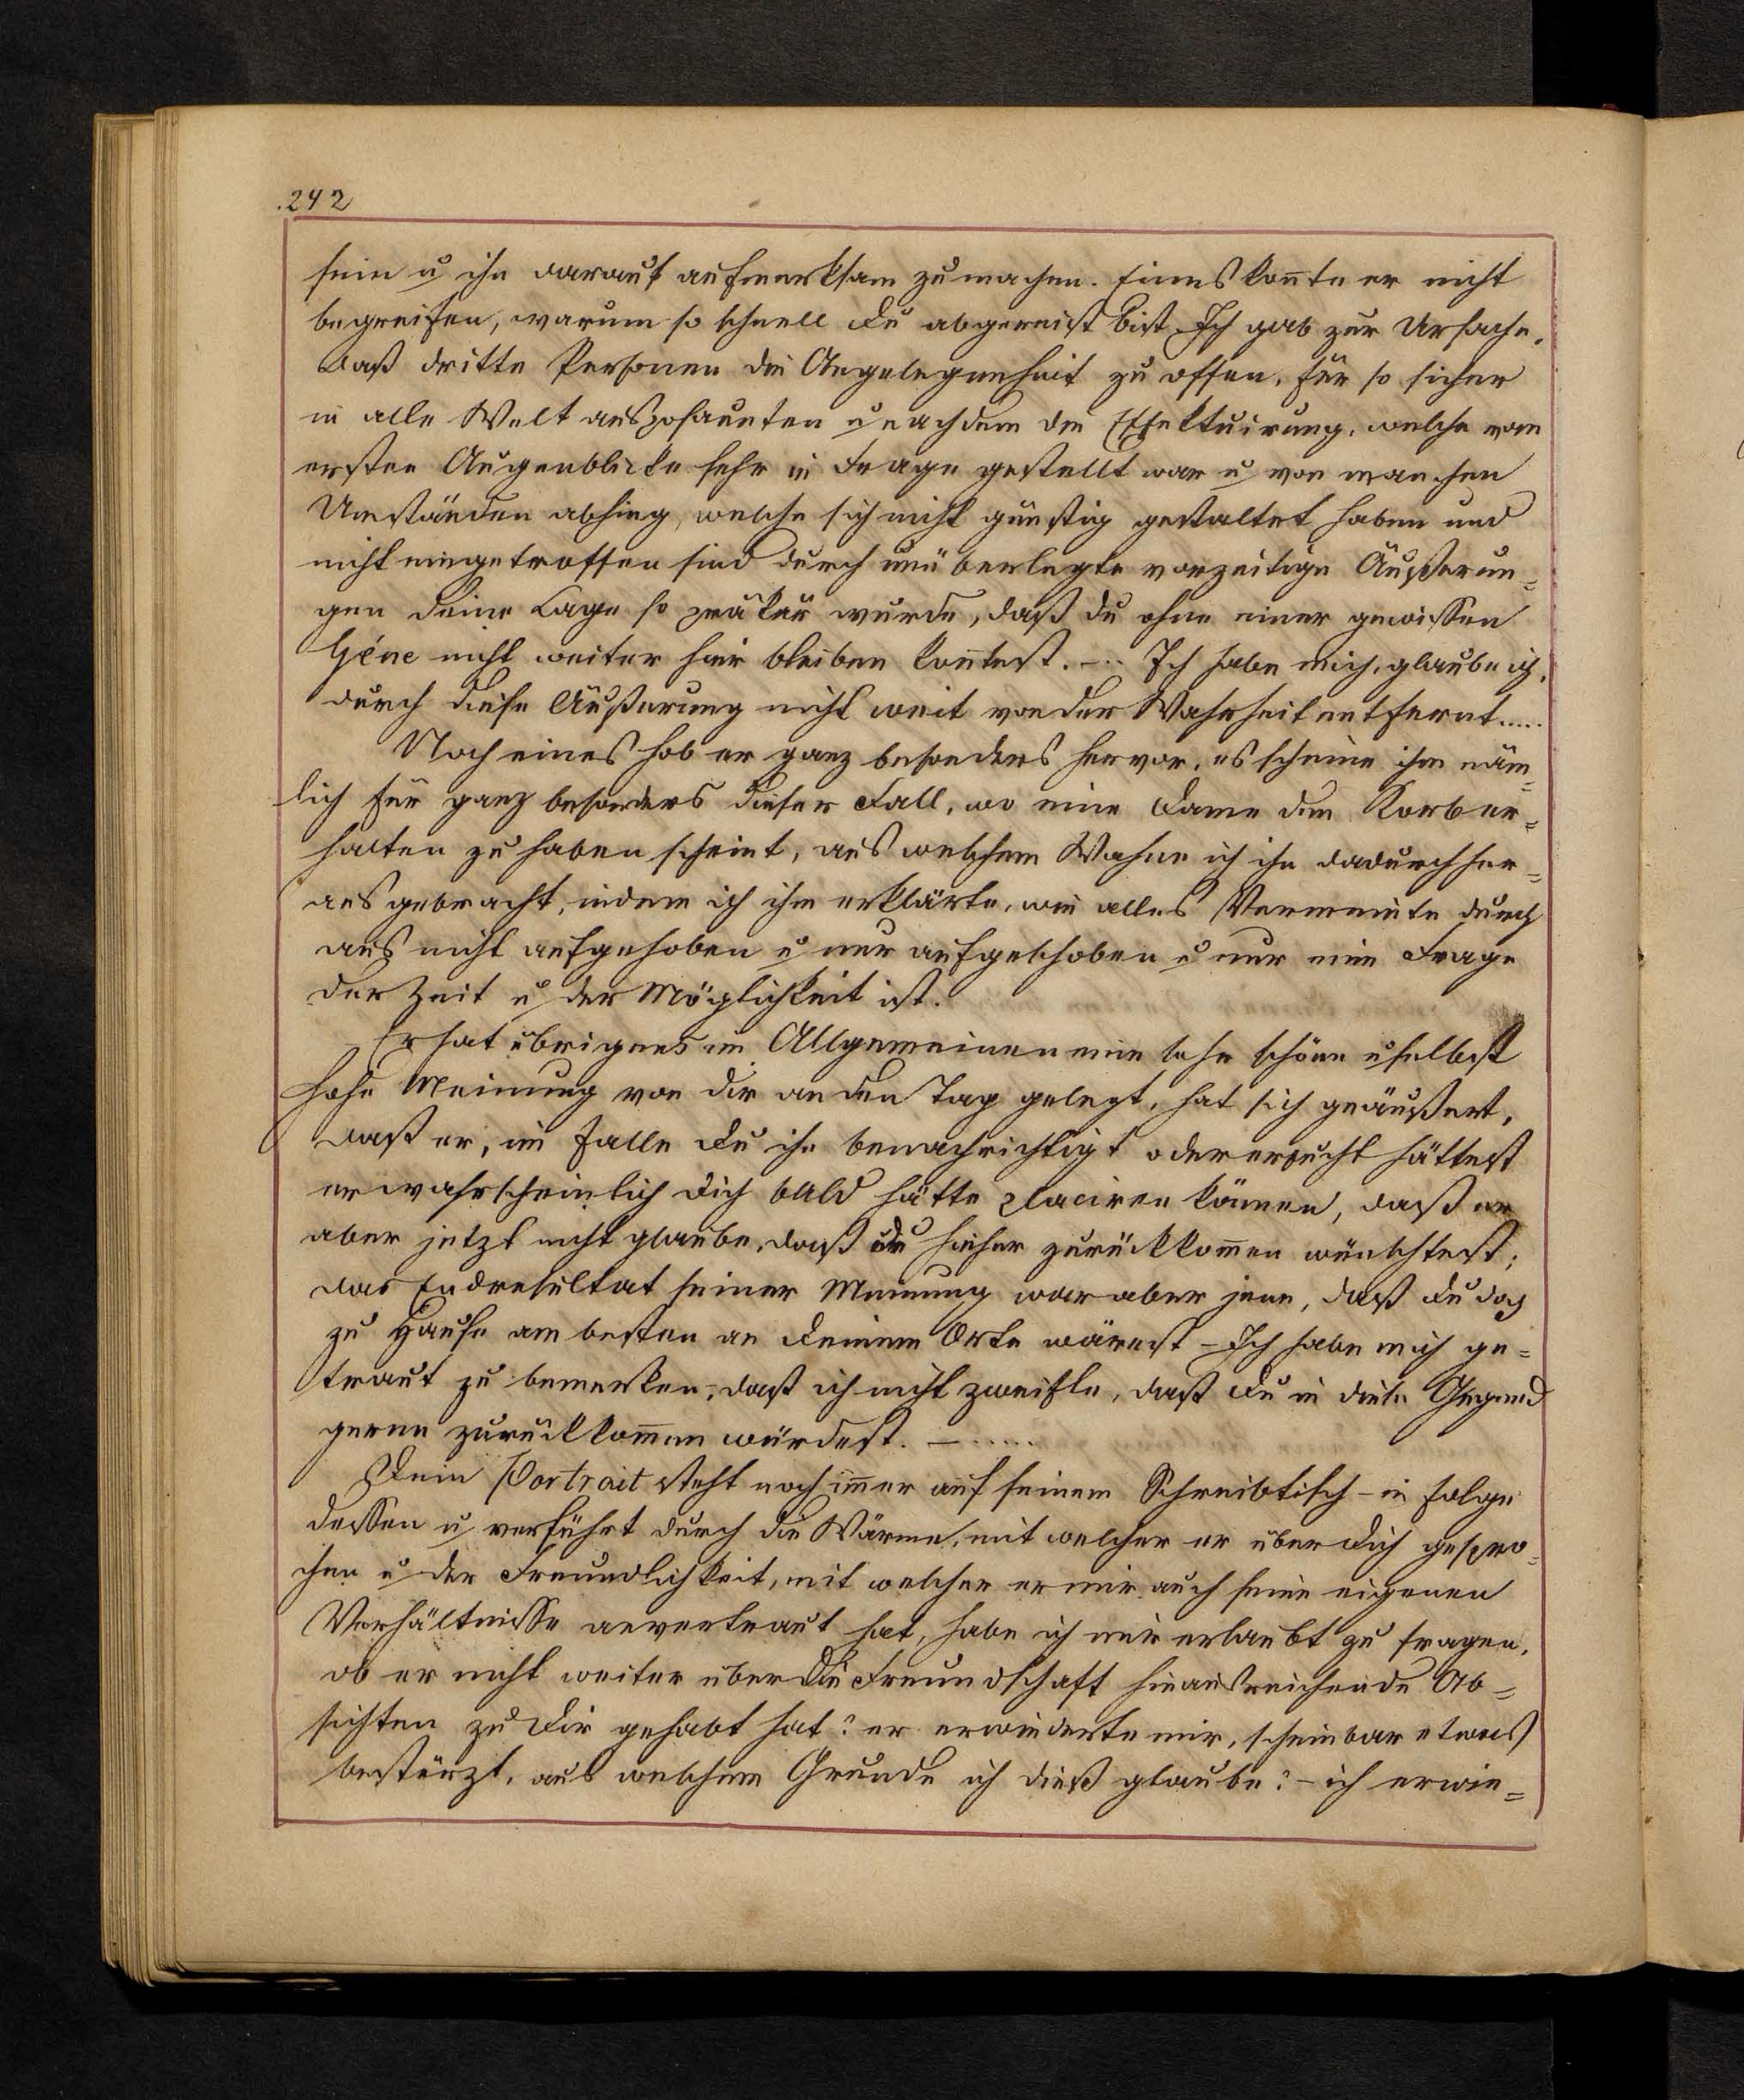 .242
sein u ihn darauf aufmerksam zu machen. Eines kon̄te er nicht
begreifen, warum so schnell Du abgereist bist. Ich gab zur Ursache,
daß dritte Personen die Angelegenheit zu offen, für so sicher
in alle Welt ausposaunten u nachdem die Effektuirung, welche vom
ersten Augenblicke sehr in Frage gestellt war u von manchen
Umständen abhing, welche sich nicht günstig gestaltet haben und
nicht eingetroffen sind durch unüberlegte vorzeitige Äußerun=
gen Deine Lage so präkär wurde, daß du ohne einer gewissen
Géne nicht weiter hier bleiben kon̄test. -.. Ich habe mich, glaube ich,
durch diese Äußerung nicht weit von der Wahrheit entfernt.....
Noch eines hob er ganz besonders hervor, es scheine ihm näm=
lich für ganz besonders dieser Fall, wo eine Dame den Korb er=
halten zu haben scheint, aus welchem Wahne ich ihn dadurch her=
aus gebracht, indem ich ihm erklärte, wie alles Vermeinte durch
aus nicht aufgehoben u nur aufgeschoben u nur eine Frage
der Zeit u der Möglichkeit ist.
Er hat übrigens im Allgemeinen eine sehr schöne u selbst
hohe Meinung von Dir an den Tag gelegt, hat sich geäußert,
daß er, im Falle Du ihn benachrichtigt oder ersucht hättest
er wahrscheinlich Dich bald hätte placiren können, daß er
aber jetzt nicht glaube, daß Du hieher zurückkom̄en wünschtest;
das Endresultat seiner Meinung war aber jene, daß Du doch
zu Hause am besten an Deinem Orte wärest - Ich habe mich ge=
traut zu bemerken, daß ich nicht zweifle, daß Du in diese Gegend
gerne zurückkom̄en würdest. - .....
Dein Portrait steht noch im̄er auf seinem Schreibtisch - in Folge
dessen u verführt durch die Wärme, mit welcher er über Dich gespro=
chen u der Freundlichkeit, mit welcher er mir auch seine eigenen
Verhältnisse anvertraut hat, habe ich mir erlaubt zu fragen,
ob er nicht weiter über die Freundschaft hinausreichende Ab=
sichten zu Dir gehabt hat? er erwiederte mir, scheinbar etwas
bestürzt, aus welchem Grunde ich dieß glaube? - ich erwie=